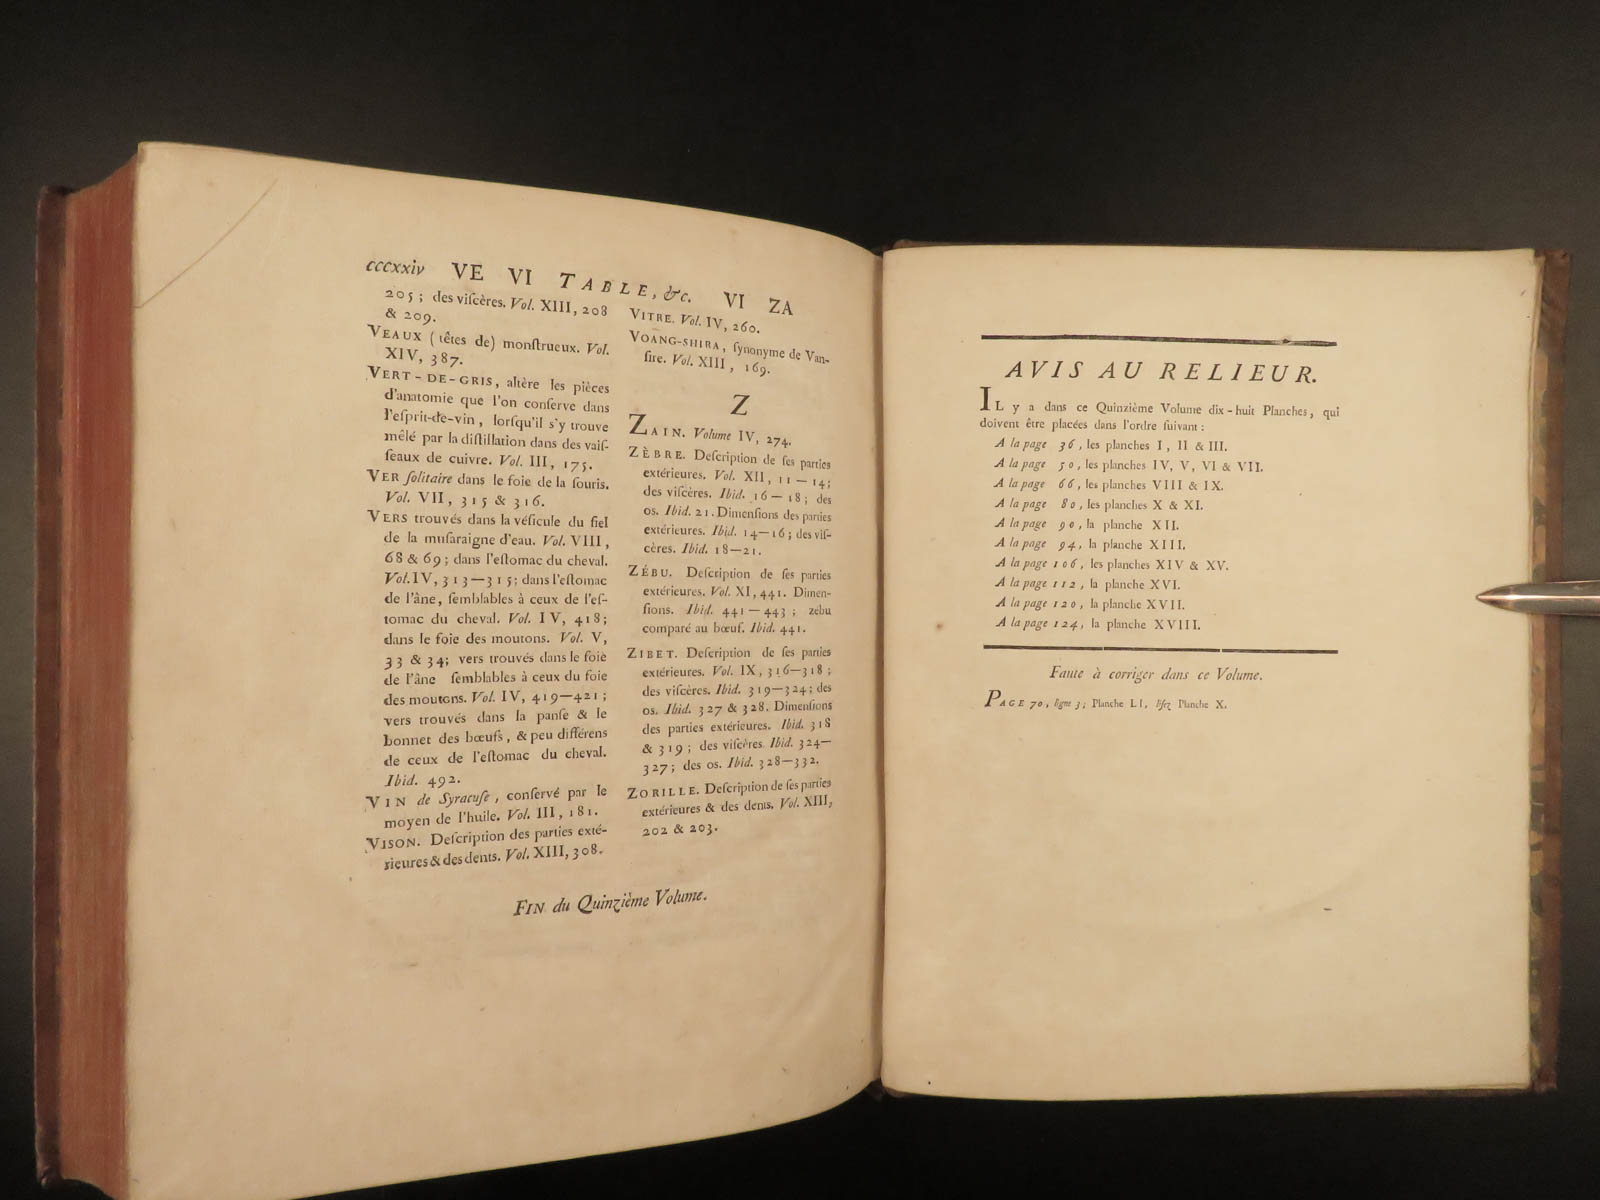 cccxxiv VE VI TABLE, &c. VI ZA
205 ; des viſcères. Vol. XIII, 208
& 209.
VEAUX ( têtes de) monſtrueux. Vol.
XIV, 387.
VERT-DE-GRIS, altère les pièces
d'anatomie que l'on conſerve dans
l'eſprit-de-vin, lorſqu'il s'y trouve
mêlé par la diſtillation dans des vaiſ-
ſeaux de cuivre. Vol. III, 175.
VER ſolitaire dans le foie de la ſouris.
Vol. VII, 315 & 316.
VERS trouvés dans la véſicule du fiel
de la muſaraigne d'eau. Vol. VIII,
68 & 69; dans l'eſtomac du cheval.
Vol. IV, 313—315; dans l'eſtomac
de l'âne, ſemblables à ceux de l'eſ-
tomac du cheval. Vol. IV, 418;
dans le foie des moutons. Vol. V,
33 & 34; vers trouvés dans le foie
de l'âne ſemblables à ceux du foie
des moutons. Vol. IV, 419—421;
vers trouvés dans la panſe & le
bonnet des bœufs, & peu différens
de ceux de l'eſtomac du cheval.
Ibid. 492.
VIN de Syracuſe, conſervé par le
moyen de l'huile. Vol. III, 181.
VISON. Deſcription des parties exté-
rieures & des dents. Vol. XIII, 308.
VITRE. Vol. IV, 260.
VOANG-SHIRA, ſynonyme de Van-
ſire. Vol. XIII, 169.
Z
ZAIN. Volume IV, 274.
ZÈBRE. Deſcription de ſes parties
extérieures. Vol. XII, 11—14;
des viſcères. Ibid. 16—18; des
os. Ibid. 21. Dimenſions des parties
extérieures. Ibid. 14—16; des viſ-
cères. Ibid. 18—21.
ZÉBU. Deſcription de ſes parties
extérieures. Vol. XI, 441. Dimen-
ſions. Ibid. 441—443 ; zébu
comparé au bœuf. Ibid. 441.
ZIBET. Deſcription de ſes parties
extérieures. Vol. IX, 316—318;
des viſcères. Ibid. 319—324; des
os. Ibid. 327 & 328. Dimenſions
des parties extérieures. Ibid. 318
& 319; des viſcères. Ibid. 324—
327; des os. Ibid. 328—332.
ZORILLE. Deſcription de ſes parties
extérieures & des dents. Vol. XIII,
202 & 203.
FIN du Quinzième Volume.
AVIS AU RELIEUR.
IL y a dans ce Quinzième Volume dix-huit Planches, qui
doivent être placées dans l'ordre ſuivant :
A la page 36, les planches I, II & III.
A la page 50, les planches IV, V, VI & VII.
A la page 66, les planches VIII & IX.
A la page 80, les planches X & XI.
A la page 90, la planche XII.
A la page 94, la planche XIII.
A la page 106, les planches XIV & XV.
A la page 112, la planche XVI.
A la page 120, la planche XVII.
A la page 124, la planche XVIII.
Faute à corriger dans ce Volume.
PAGE 70, ligne 3; Planche LI, liſez Planche X.